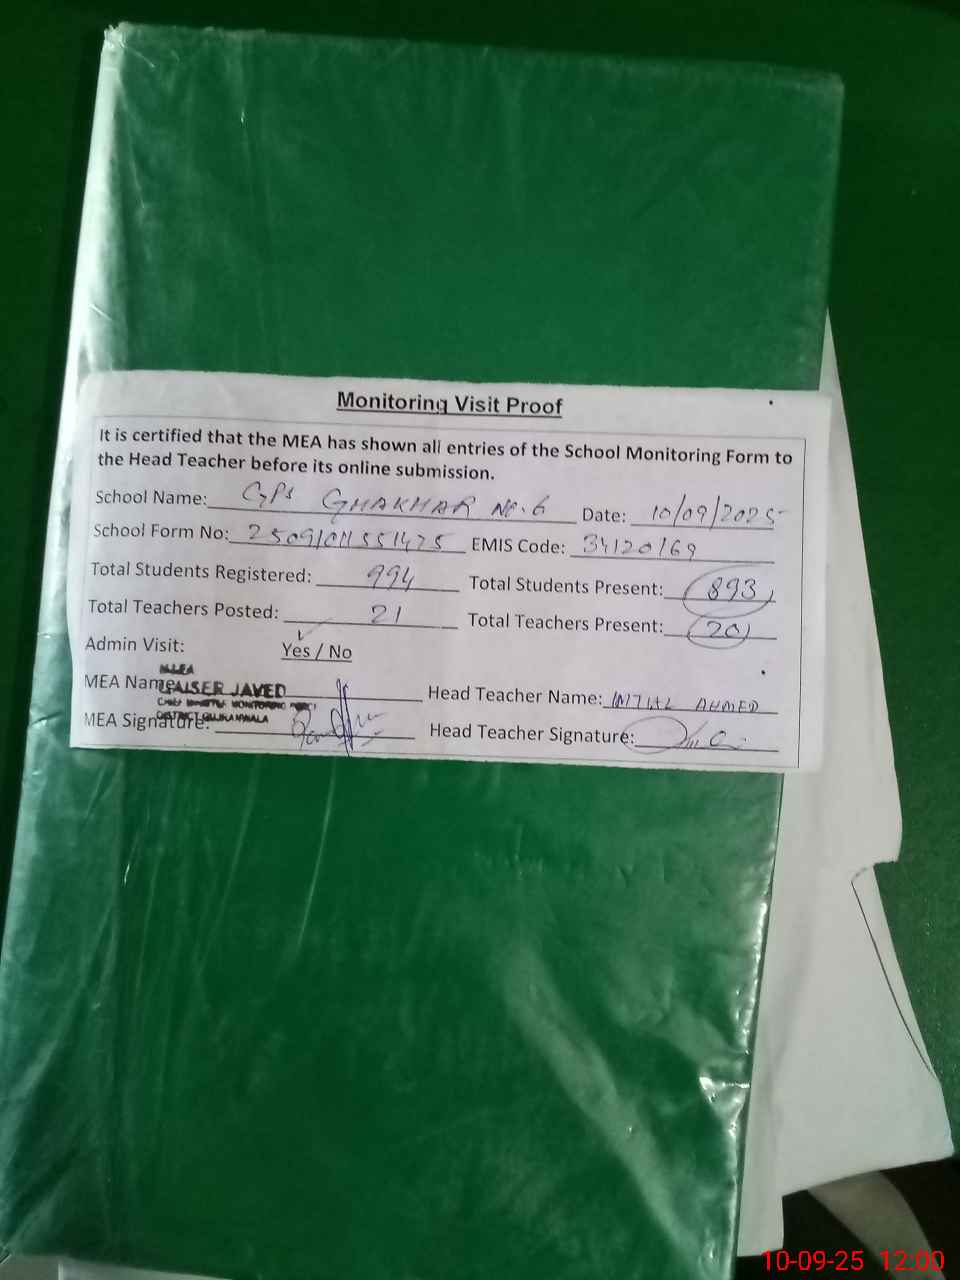 Monitoring Visit Proof
It is certified that the MEA has shown all entries of the School Monitoring Form to
the Head Teacher before its online submission.
School Name: GPS GHAKHAR No. 6 Date: 10/09/2025
School Form No: 2509101551475 EMIS Code: 34120169
Total Students Registered: 994 Total Students Present: 893
Total Teachers Posted: 21 Total Teachers Present: 20
Admin Visit: Yes / No
MEA Name: QAISER JAVED Head Teacher Name: AHMED
DISTRICT GUJRANWALA
MEA Signature: Head Teacher Signature:
10-09-25 12:00